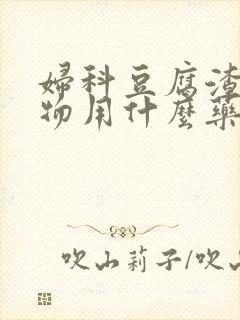 婦科豆腐渣
物用什麼藥
吹山莉子/吹山